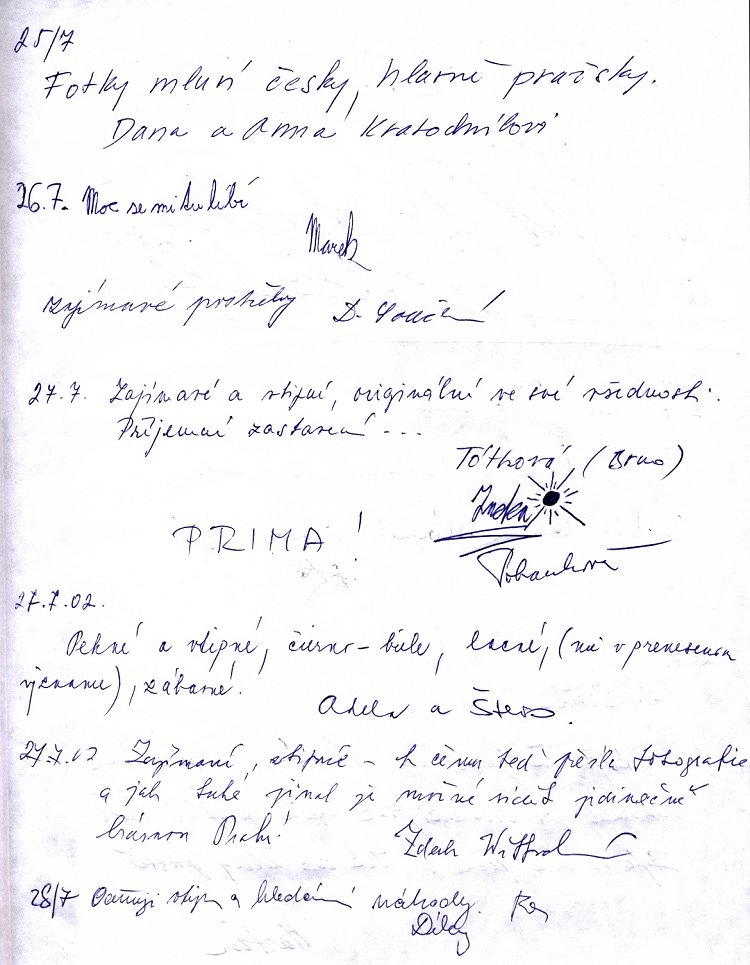 25/7
Fotky mluví česky, hlavně pražsky.
Dana a Anna Kratochvílovi
26.7. Moc se mi tu líbí
Marek
zajímavé postřehy D.
27.7. Zajímavé a vtipné, originální ve své všednosti.
Příjemné zastavení ...
Tóthová (Brno)
PRIMA!
27.7.02.
Pekné a vtipné, čierno-biele, lacné, (nie v prenesenom
význame), zábavné.
Adela a Števo.
27.7.02 Zajímavé, vtipné - k čemu teď fotografie
a jak také jinak je možné jedinečně
krásnou Prahu!
Zdeněk
28/7 Oceňuji vtip a hledání náhody.
Díky